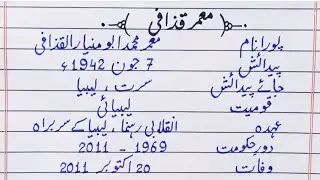 معمر قذافی
پورا نام معمر محمد ابو منیار القذافی
پیدائش 7 جون 1942ء
جائے پیدائش سرت، لیبیا
قومیت لیبیائی
عہدہ انقلابی رہنما، لیبیا کے سربراہ
دور حکومت 1969 - 2011
وفات 20 اکتوبر 2011